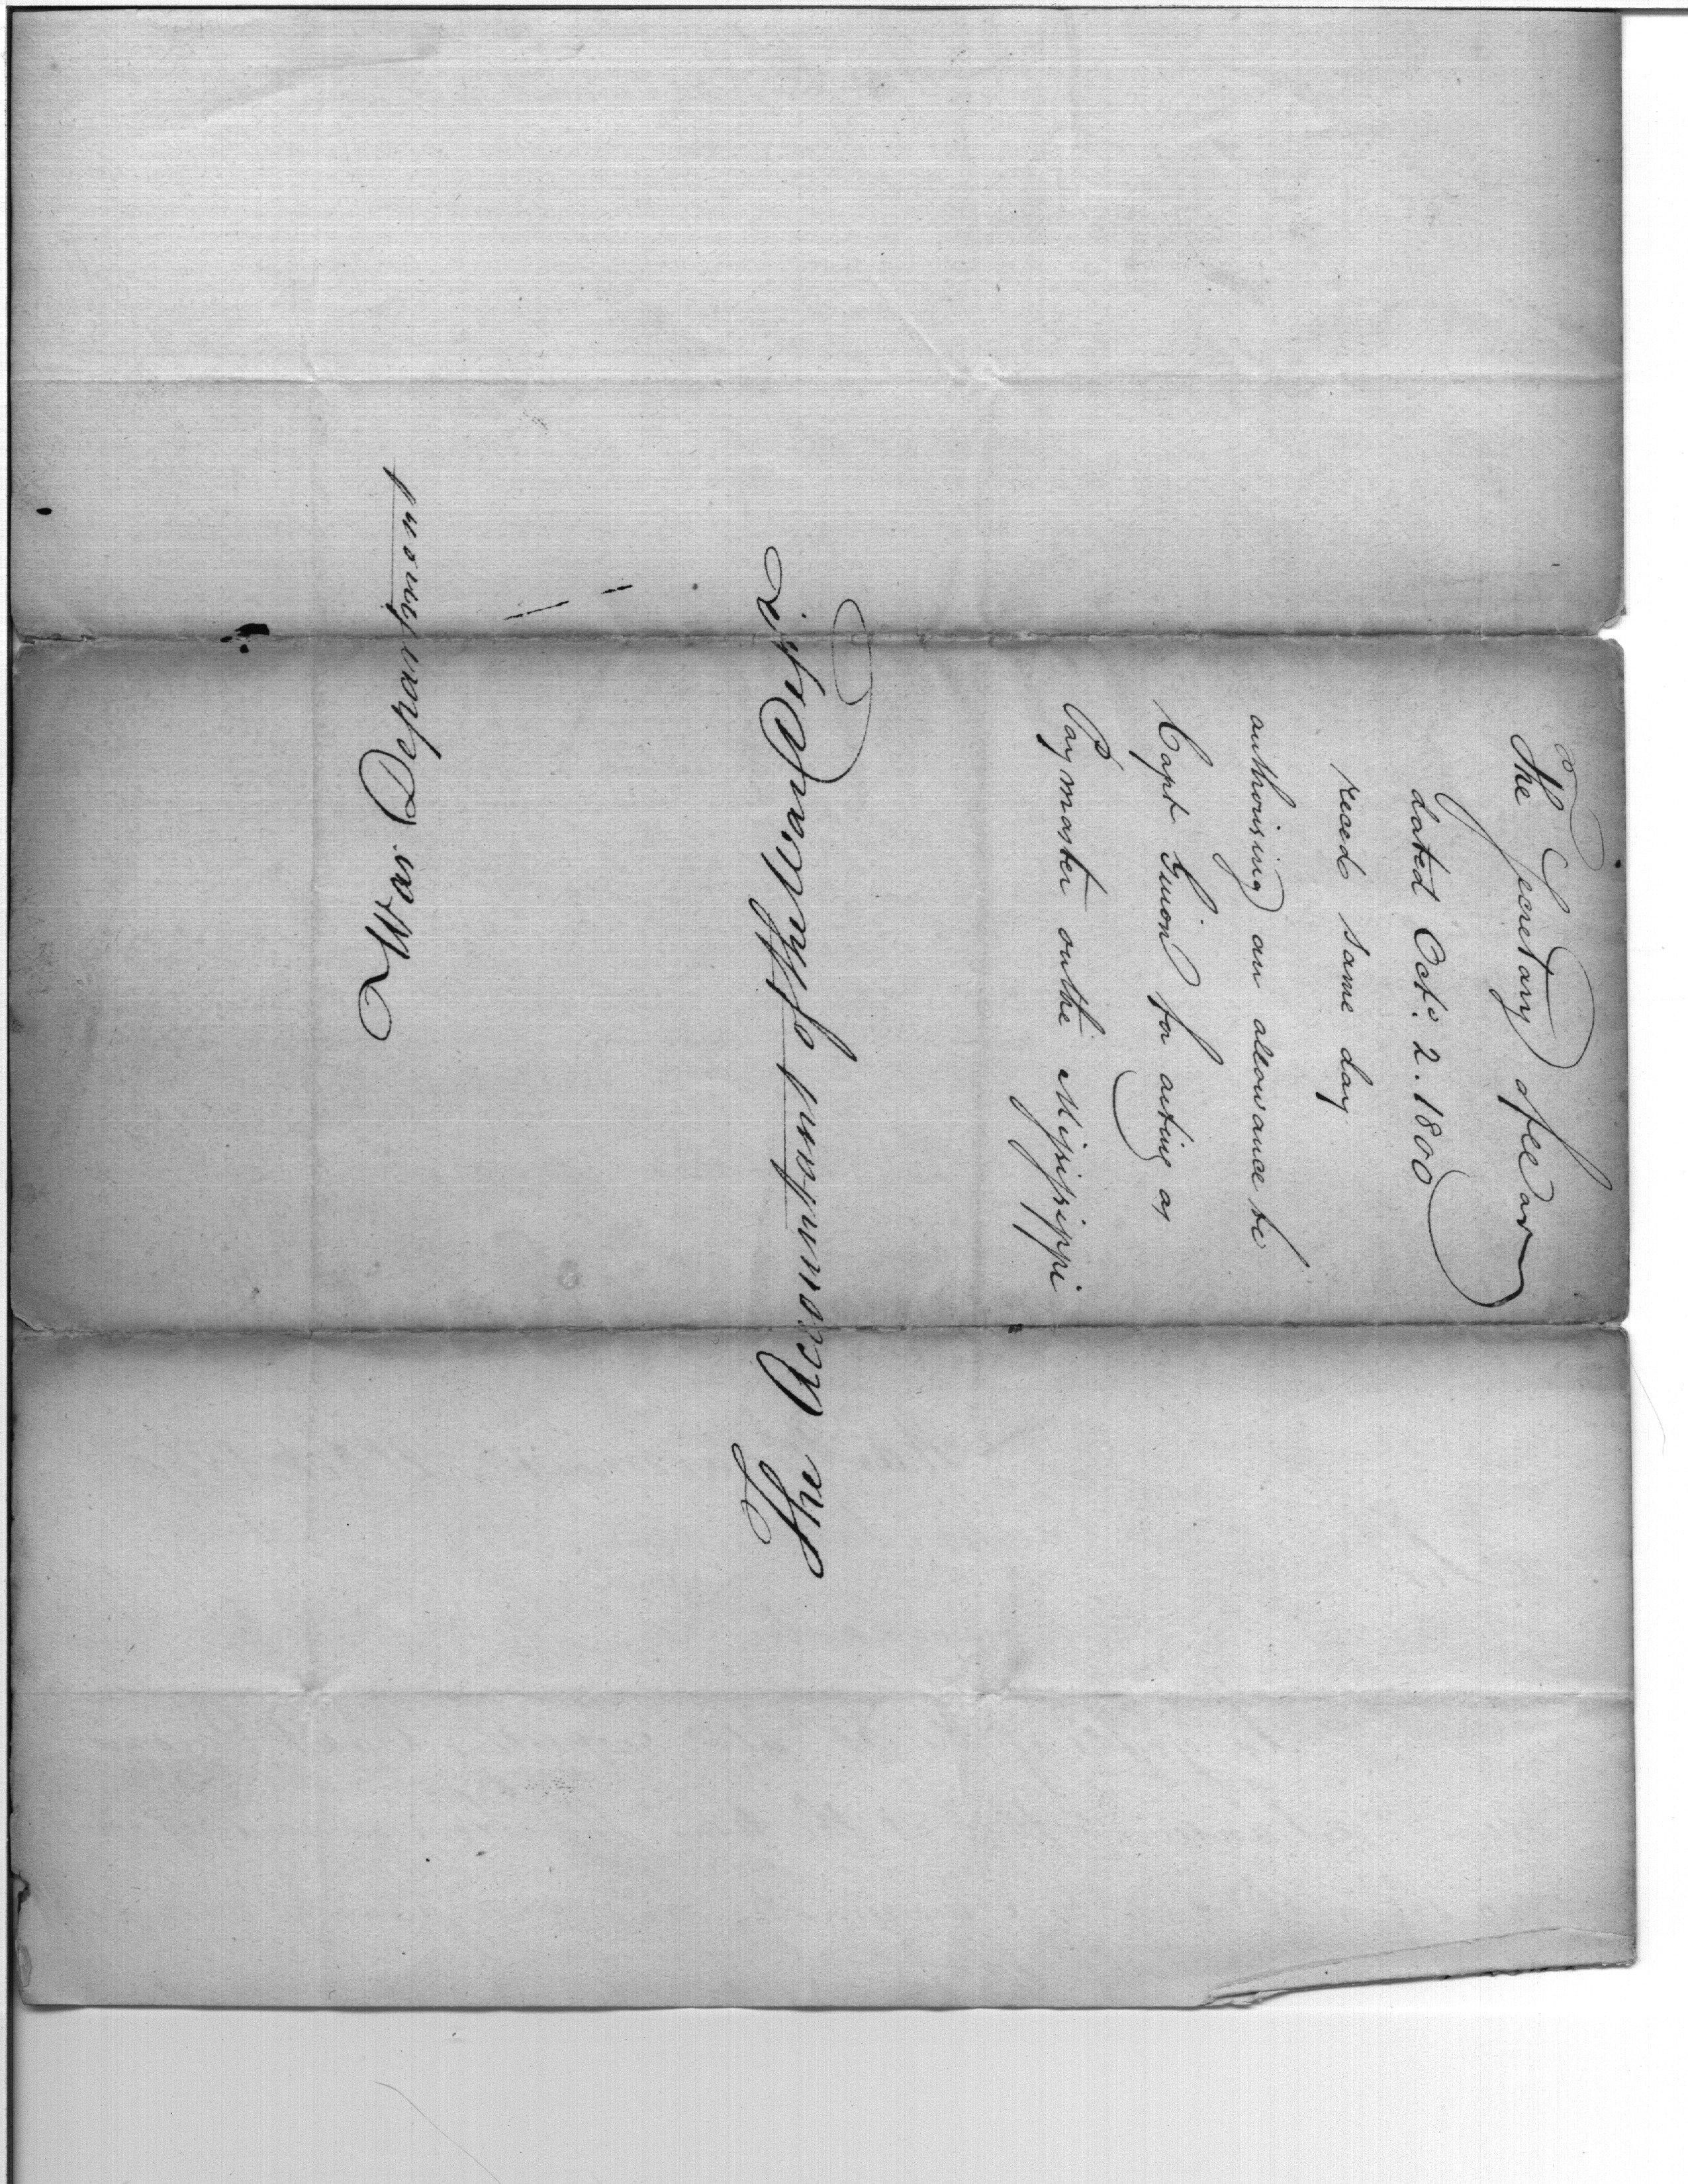 The Secretary of War
dated Octo. 2. 1800
reced same day
authorising an allowance to
Capt Guion for acting as
Paymaster on the Mississippi
The Accountant of the
War Department